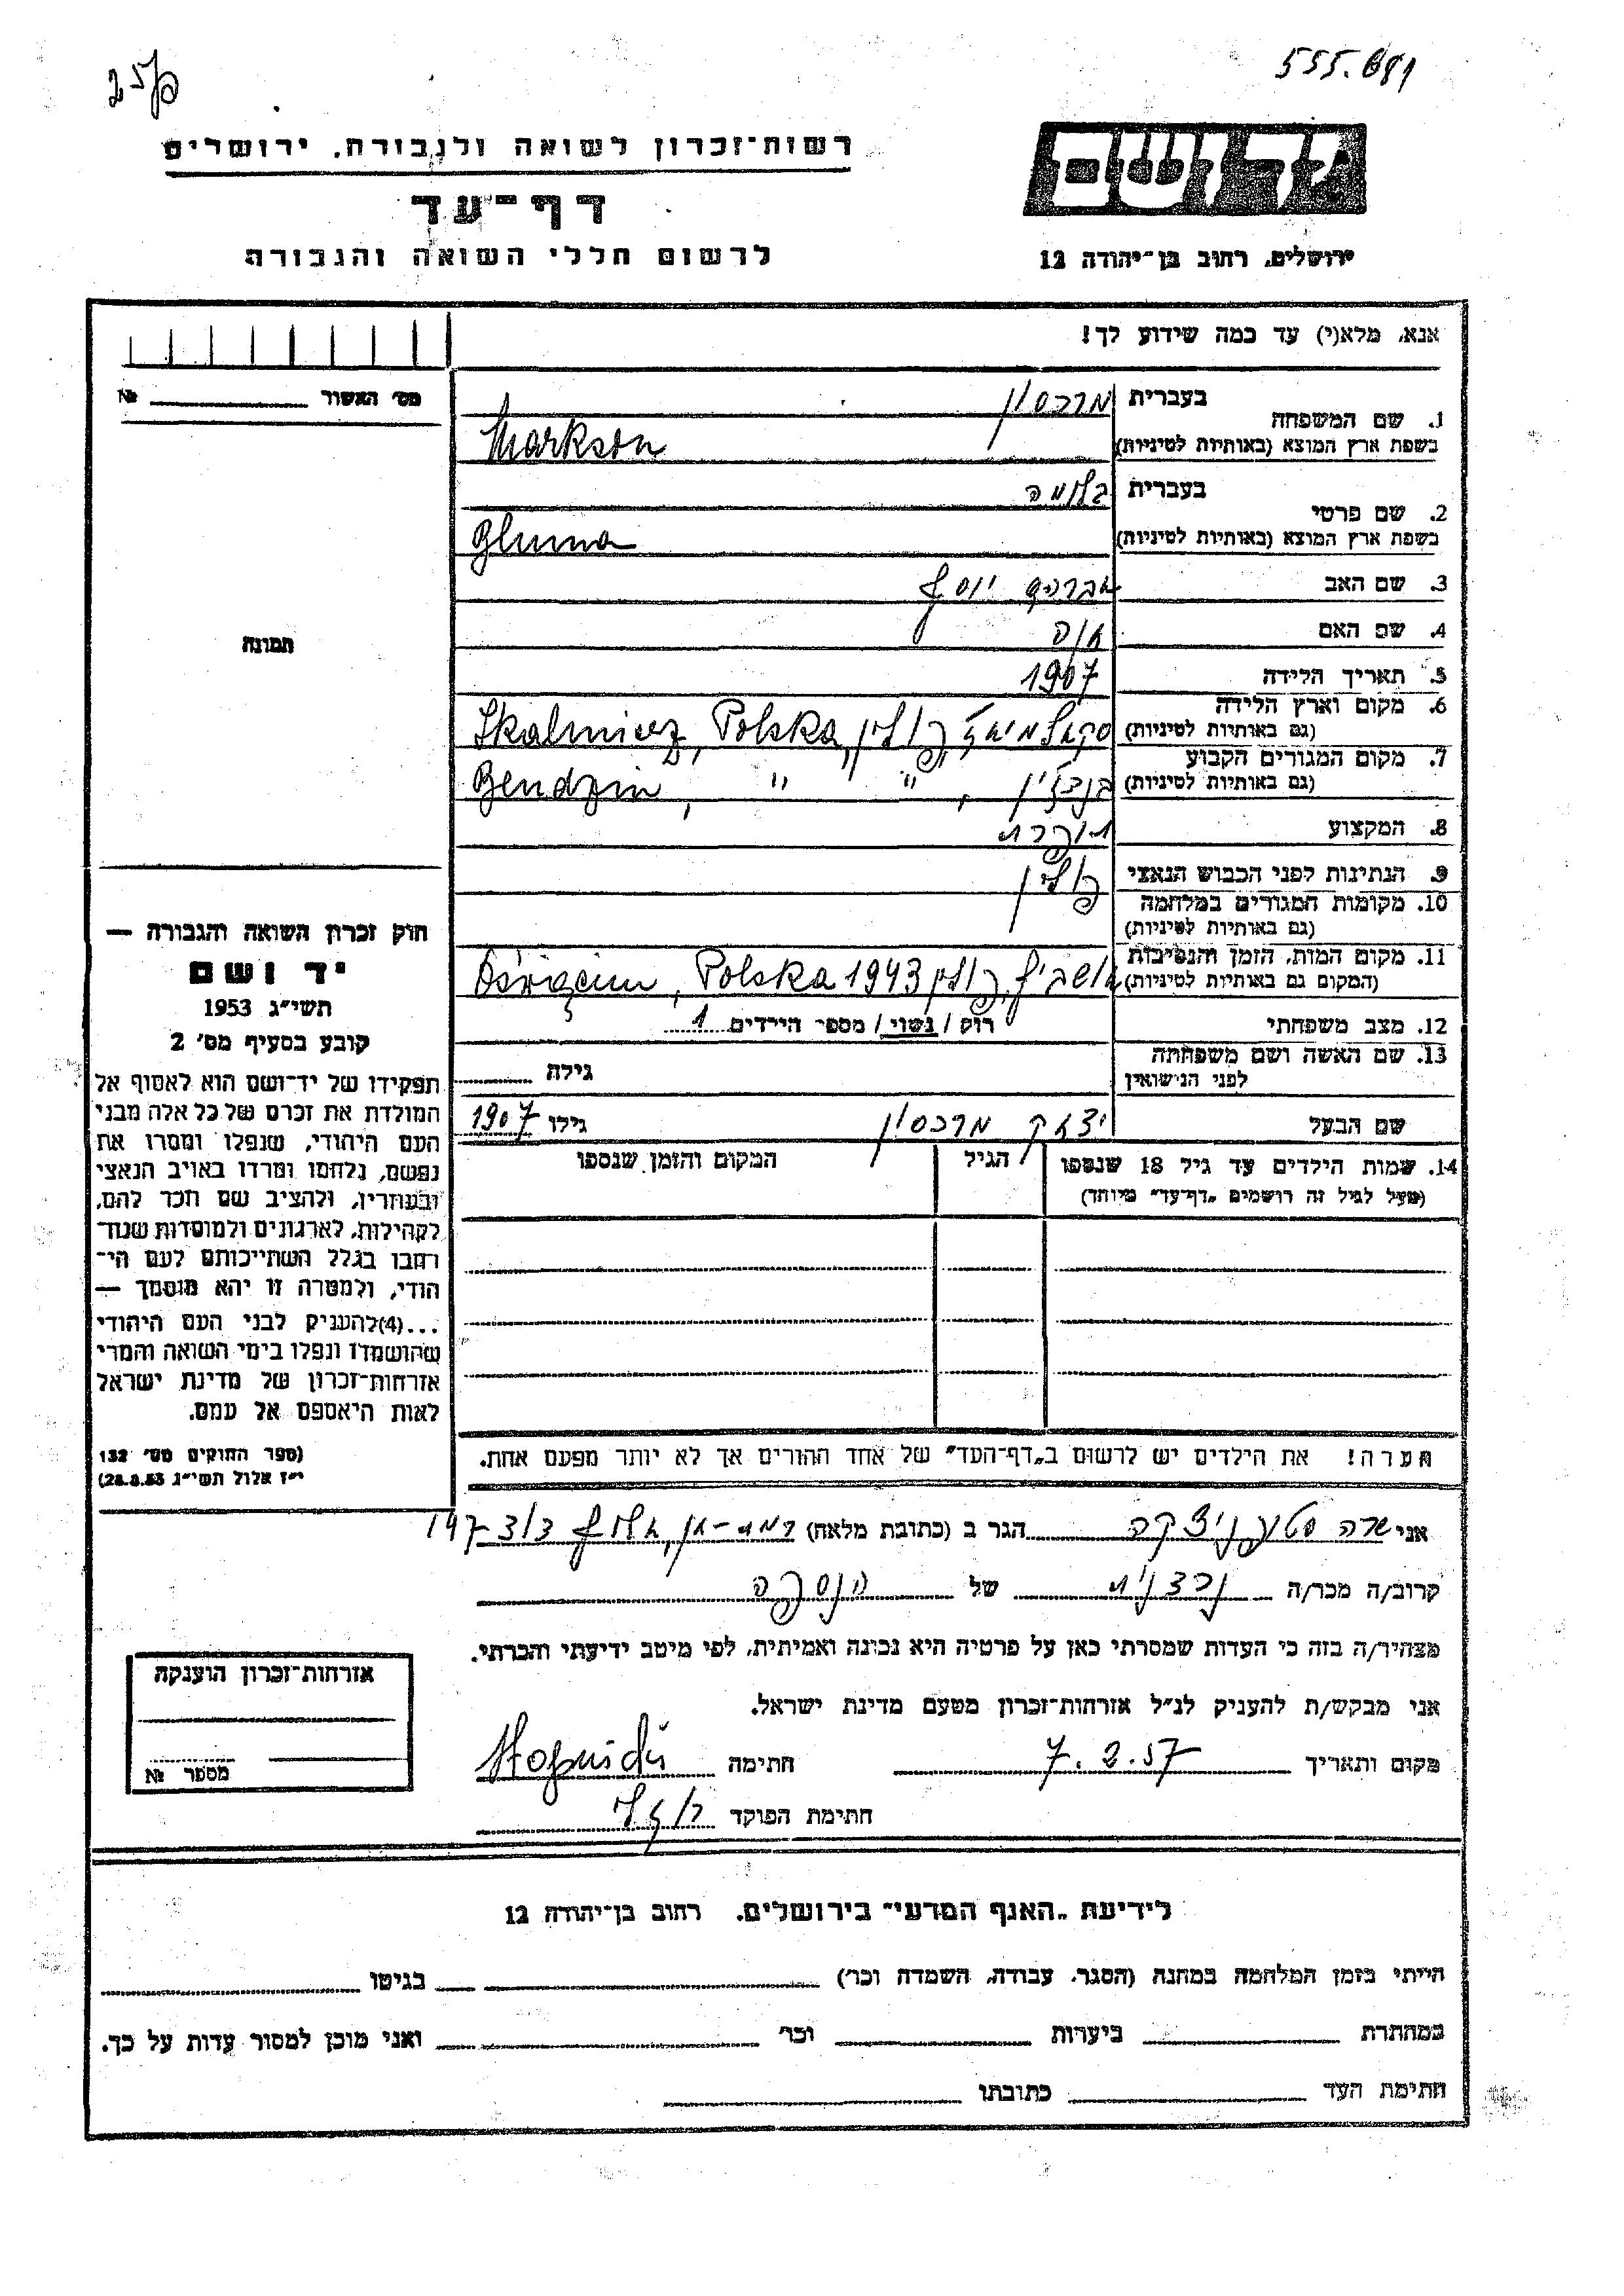 555.681
רשות־זכרון לשואה ולגבורה, ירושלים
דף־עד
לרשום חללי השואה והגבורה
יד ושם
ירושלים, רחוב בן־יהודה 12
אנא, מלא(י) עד כמה שידוע לך!
מס׳ האשור № 
1. שם המשפחה בעברית מרכסון
בשפת ארץ המוצא (באותיות לטיניות) Markson
2. שם פרטי בעברית בלומה
בשפת ארץ המוצא (באותיות לטיניות) Bluma
3. שם האב אברהם יוסף
4. שם האם
5. תאריך הלידה 1907
6. מקום וארץ הלידה (גם באותיות לטיניות) סקאלמיאז׳ פולין, Skalmierz, Polska
7. מקום המגורים הקבוע (גם באותיות לטיניות) בנדז׳ין, " " Bendzin,
8. המקצוע תופרת
9. הנתינות לפני הכבוש הנאצי פולין
10. מקומות המגורים במלחמה (גם באותיות לטיניות)
11. מקום המות, הזמן והנסיבות (המקום גם באותיות לטיניות) אושביץ, פולין Oświęcim, Polska 1943
12. מצב משפחתי רווק / נשוי / מספר הילדים 1
13. שם האשה ושם משפחתה לפני הנישואין גילה
שם הבעל יצחק מרכסון גילו 1907
14. שמות הילדים עד גיל 18 שנספו הגיל המקום והזמן שנספו
(מעל לגיל זה רושמים „דף־עד” מיוחד)
הערה! את הילדים יש לרשום ב„דף־העד” של אחד ההורים אך לא יותר מפעם אחת.
תמונה
חוק זכרון השואה והגבורה —
יד ושם
תשי״ג 1953
קובע בסעיף מס׳ 2
תפקידו של יד־ושם הוא לאסוף אל
המולדת את זכרם של כל אלה מבני
העם היהודי, שנפלו ומסרו את
נפשם, נלחמו ומרדו באויב הנאצי
ובעוזריו, ולהציב שם וזכר להם,
לקהילות, לארגונים ולמוסדות שנח־
רבו בגלל השתייכותם לעם הי־
הודי, ולמטרה זו יהא מוסמך —
...(4)להעניק לבני העם היהודי
שהושמדו ונפלו בימי השואה והמרי
אזרחות־זכרון של מדינת ישראל
לאות היאספם אל עמם.
(ספר החוקים מס׳ 132
י״ז אלול תשי״ג 28.8.53)
אני שרה הגר ב (כתובת מלאה) רמת-גן,
קרוב/ה מכר/ה של הנספה
מצהיר/ה בזה כי העדות שמסרתי כאן על פרטיה היא נכונה ואמיתית, לפי מיטב ידיעתי והכרתי.
אני מבקש/ת להעניק לנ״ל אזרחות־זכרון מטעם מדינת ישראל.
מקום ותאריך 7.2.57 חתימה
חתימת הפוקד
אזרחות־זכרון הוענקה
מספר №
לידיעת „האגף המדעי” בירושלים, רחוב בן־יהודה 12
הייתי בזמן המלחמה במחנה (הסגר, עבודה, השמדה וכו׳) בגיטו
במחתרת ביערות וכו׳ ואני מוכן למסור עדות על כך.
חתימת העד כתובתו